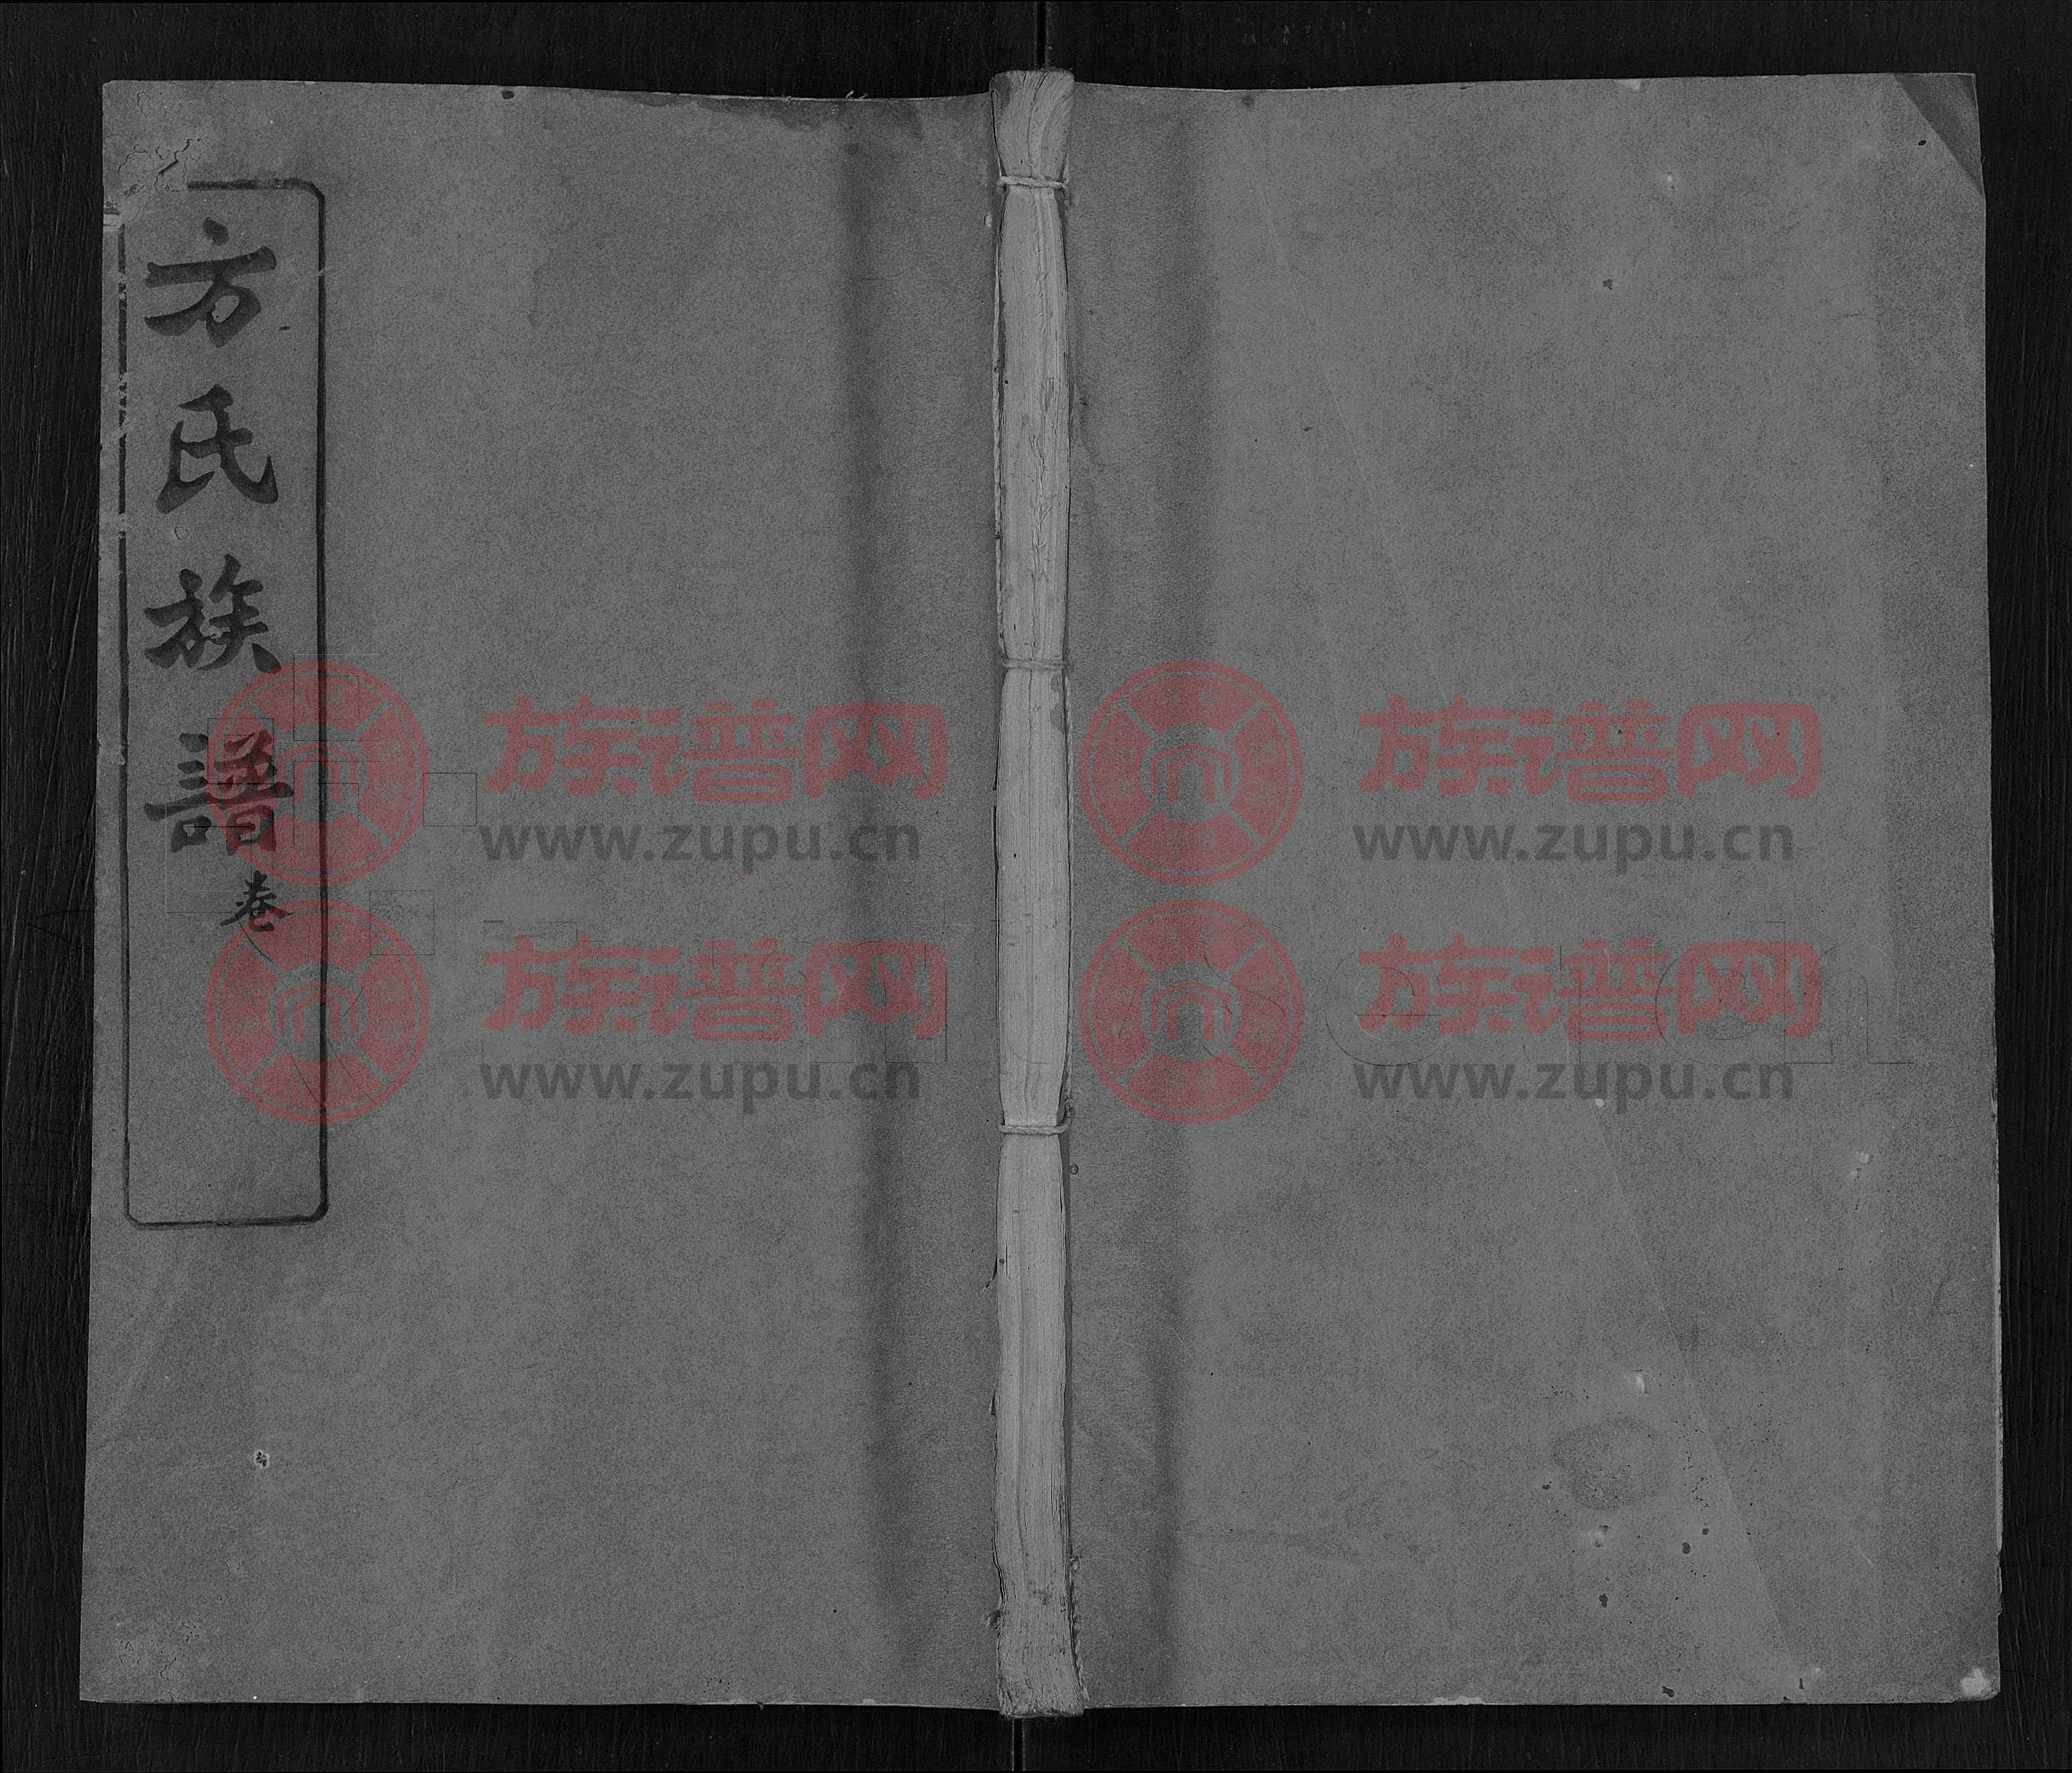 方氏族譜
卷
族谱网
www.zupu.cn
族谱网
www.zupu.cn
族谱网
www.zupu.cn
族谱网
www.zupu.cn